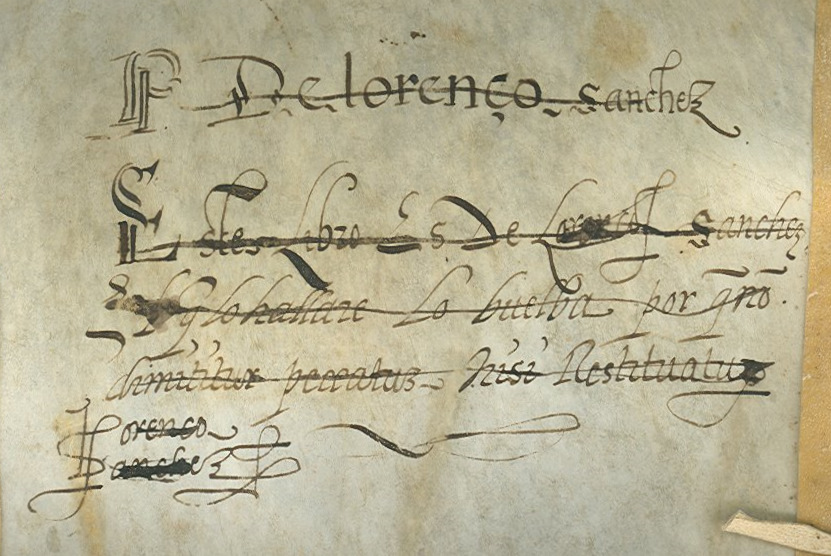 P De lorenço sanchez
Este Libro Es De Lorenço Sanchez
Y si q̃ lo hallare lo buelba por q̃ nõ.
dimititur peccatus Nisi Restituatur
Lorenço
Sanchez